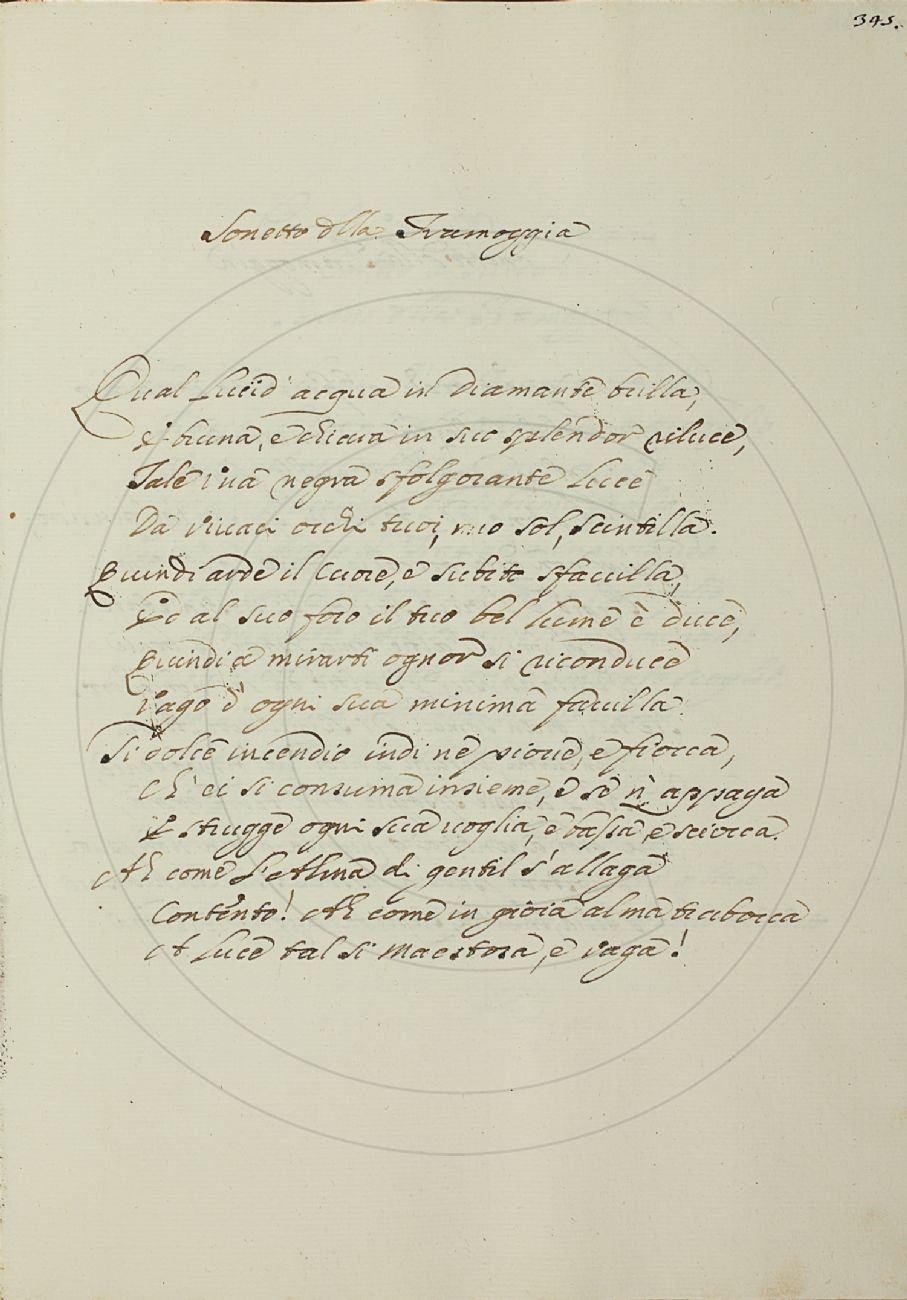 345.
Sonetto dlla Tramoggia
Qual lucid' acqua in diamante brilla,
E bruna, e chiara in suo splendor riluce,
Tale una negra sfolgorante luce
Da vivaci occhi tuoi, mio sol, scintilla.
Quindi arde il cuore, e subito sfavilla,
Ed al suo foco il tuo bel lume è duce,
Quindi a mirarti ognor si riconduce
Vago d' ogni sua minima favilla.
Sì dolce incendio indi ne piove, e fiocca,
Ch' ei si consuma insieme, e se n' appaga
E strugge ogni sua voglia, e bassa, e sciocca.
Ah come l'Alma di gentil s' allaga
Contento! Ah come in gioia alma trabocca
A luce tal sì maestosa, e vaga!